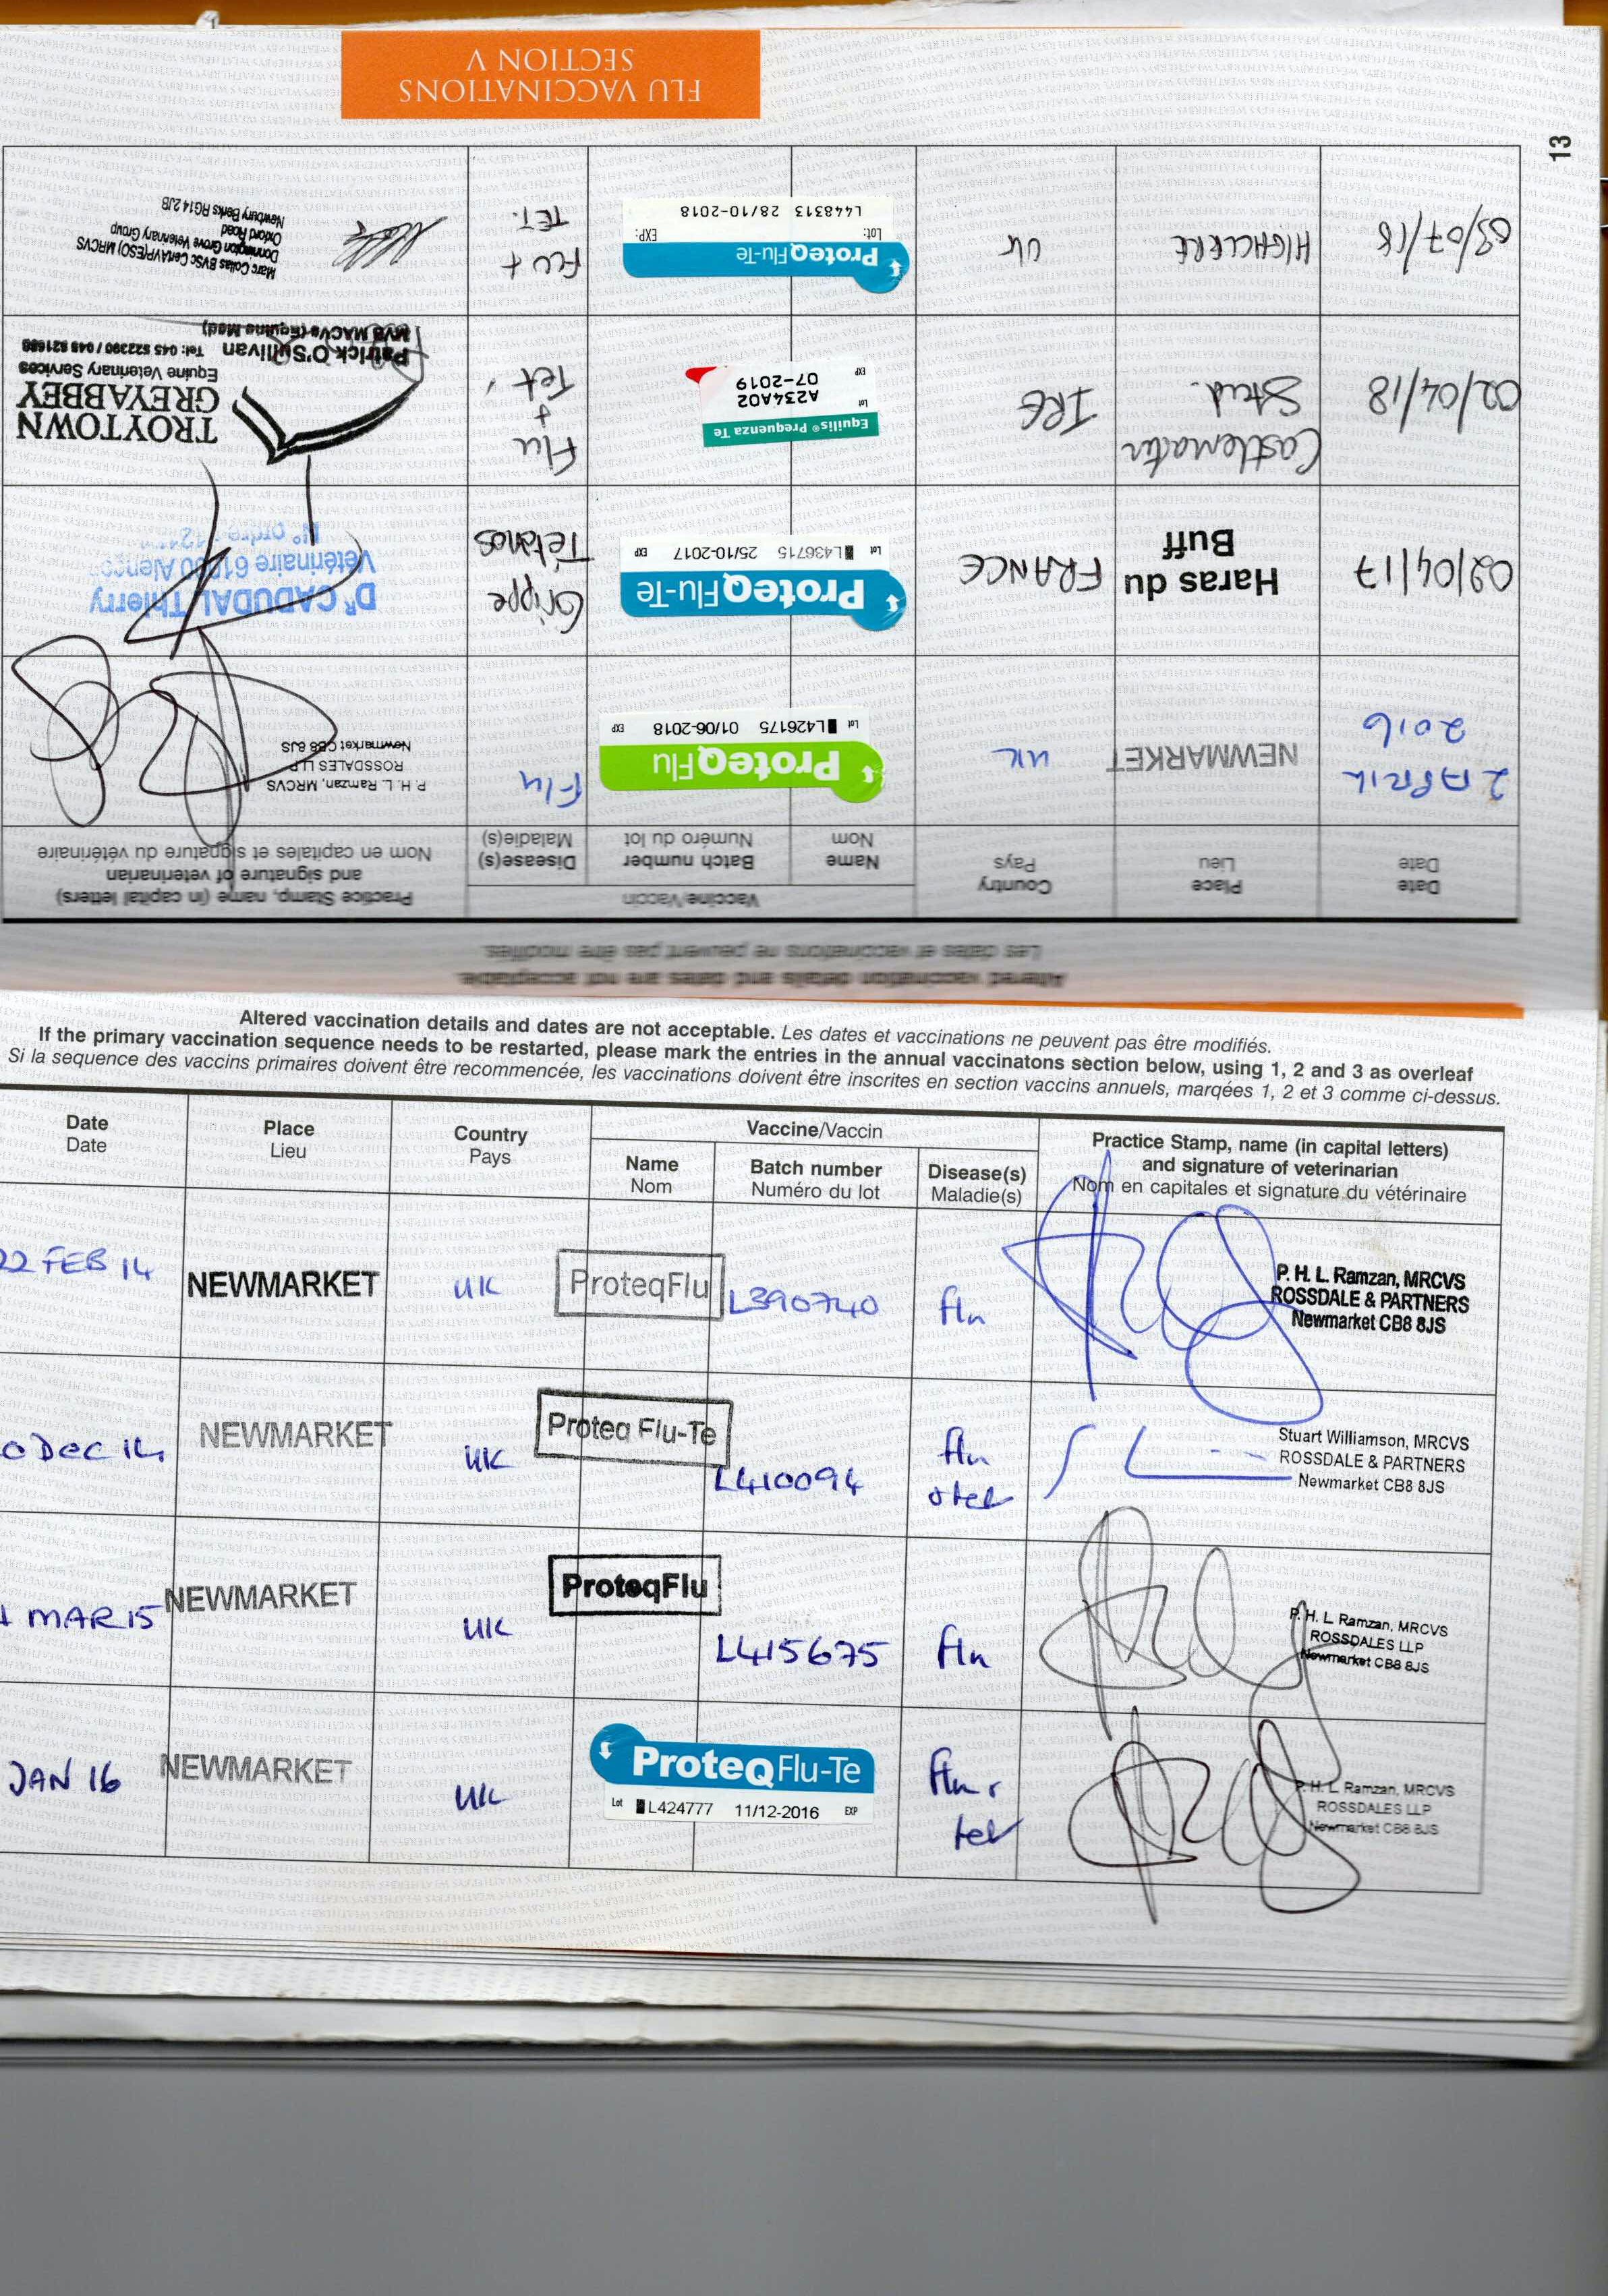 FLU VACCINATIONS
SECTION V
13
Altered vaccination details and dates are not acceptable.
Les dates et vaccinations ne peuvent pas être modifiés.
Date
Date
Place
Lieu
Country
Pays
Vaccine/Vaccin
Name
Nom
Batch number
Numéro du lot
Disease(s)
Maladie(s)
Practice Stamp, name (in capital letters)
and signature of veterinarian
Nom en capitales et signature du vétérinaire
2 APRIL
2016
NEWMARKET
UK
ProteqFlu
Lot L426175 01/06-2018 EXP
Flu
P. H. L. Ramzan, MRCVS
ROSSDALES LLP
Newmarket CB8 8JS
02/04/17
Haras du
Buff
FRANCE
ProteqFlu-Te
Lot L436715 25/10-2017 EXP
Grippe
Tétanos
Dr CADUDAL Thierry
Vétérinaire 61000
N° ordre
02/04/18
Castlemartin
Stud.
IRE
Equilis® Prequenza Te
Lot A234A02
EXP 07-2019
Flu
+
Tet,
TROYTOWN
GREYABBEY
Equine Veterinary Services
Patrick O'Sullivan Tel: 045 522390 / 045 521686
MVB MACVs (Equine Med)
HIGHCLERE
UK
ProteqFlu-Te
Lot: EXP:
L448313 28/10-2018
FLU +
TET.
Marc Collas BVSc CertAVP(ESO) MRCVS
Donnington Grove Veterinary Group
Oxford Road
Newbury Berks RG14 2JB
Altered vaccination details and dates are not acceptable. Les dates et vaccinations ne peuvent pas être modifiés.
If the primary vaccination sequence needs to be restarted, please mark the entries in the annual vaccinatons section below, using 1, 2 and 3 as overleaf
Si la sequence des vaccins primaires doivent être recommencée, les vaccinations doivent être inscrites en section vaccins annuels, marqées 1, 2 et 3 comme ci-dessus.
Date
Date
Place
Lieu
Country
Pays
Vaccine/Vaccin
Name
Nom
Batch number
Numéro du lot
Disease(s)
Maladie(s)
Practice Stamp, name (in capital letters)
and signature of veterinarian
Nom en capitales et signature du vétérinaire
22 FEB 14
NEWMARKET
UK
ProteqFlu
L390740
flu
P. H. L. Ramzan, MRCVS
ROSSDALE & PARTNERS
Newmarket CB8 8JS
DEC 14
NEWMARKET
UK
Proteq Flu-Te
L410094
flu
Stuart Williamson, MRCVS
ROSSDALE & PARTNERS
Newmarket CB8 8JS
MAR 15
NEWMARKET
UK
ProteqFlu
L415675
flu
P. H. L. Ramzan, MRCVS
ROSSDALES LLP
Newmarket CB8 8JS
JAN 16
NEWMARKET
UK
ProteqFlu-Te
Lot L424777 11/12-2016 EXP
flu
tet
P. H. L. Ramzan, MRCVS
ROSSDALES LLP
Newmarket CB8 8JS